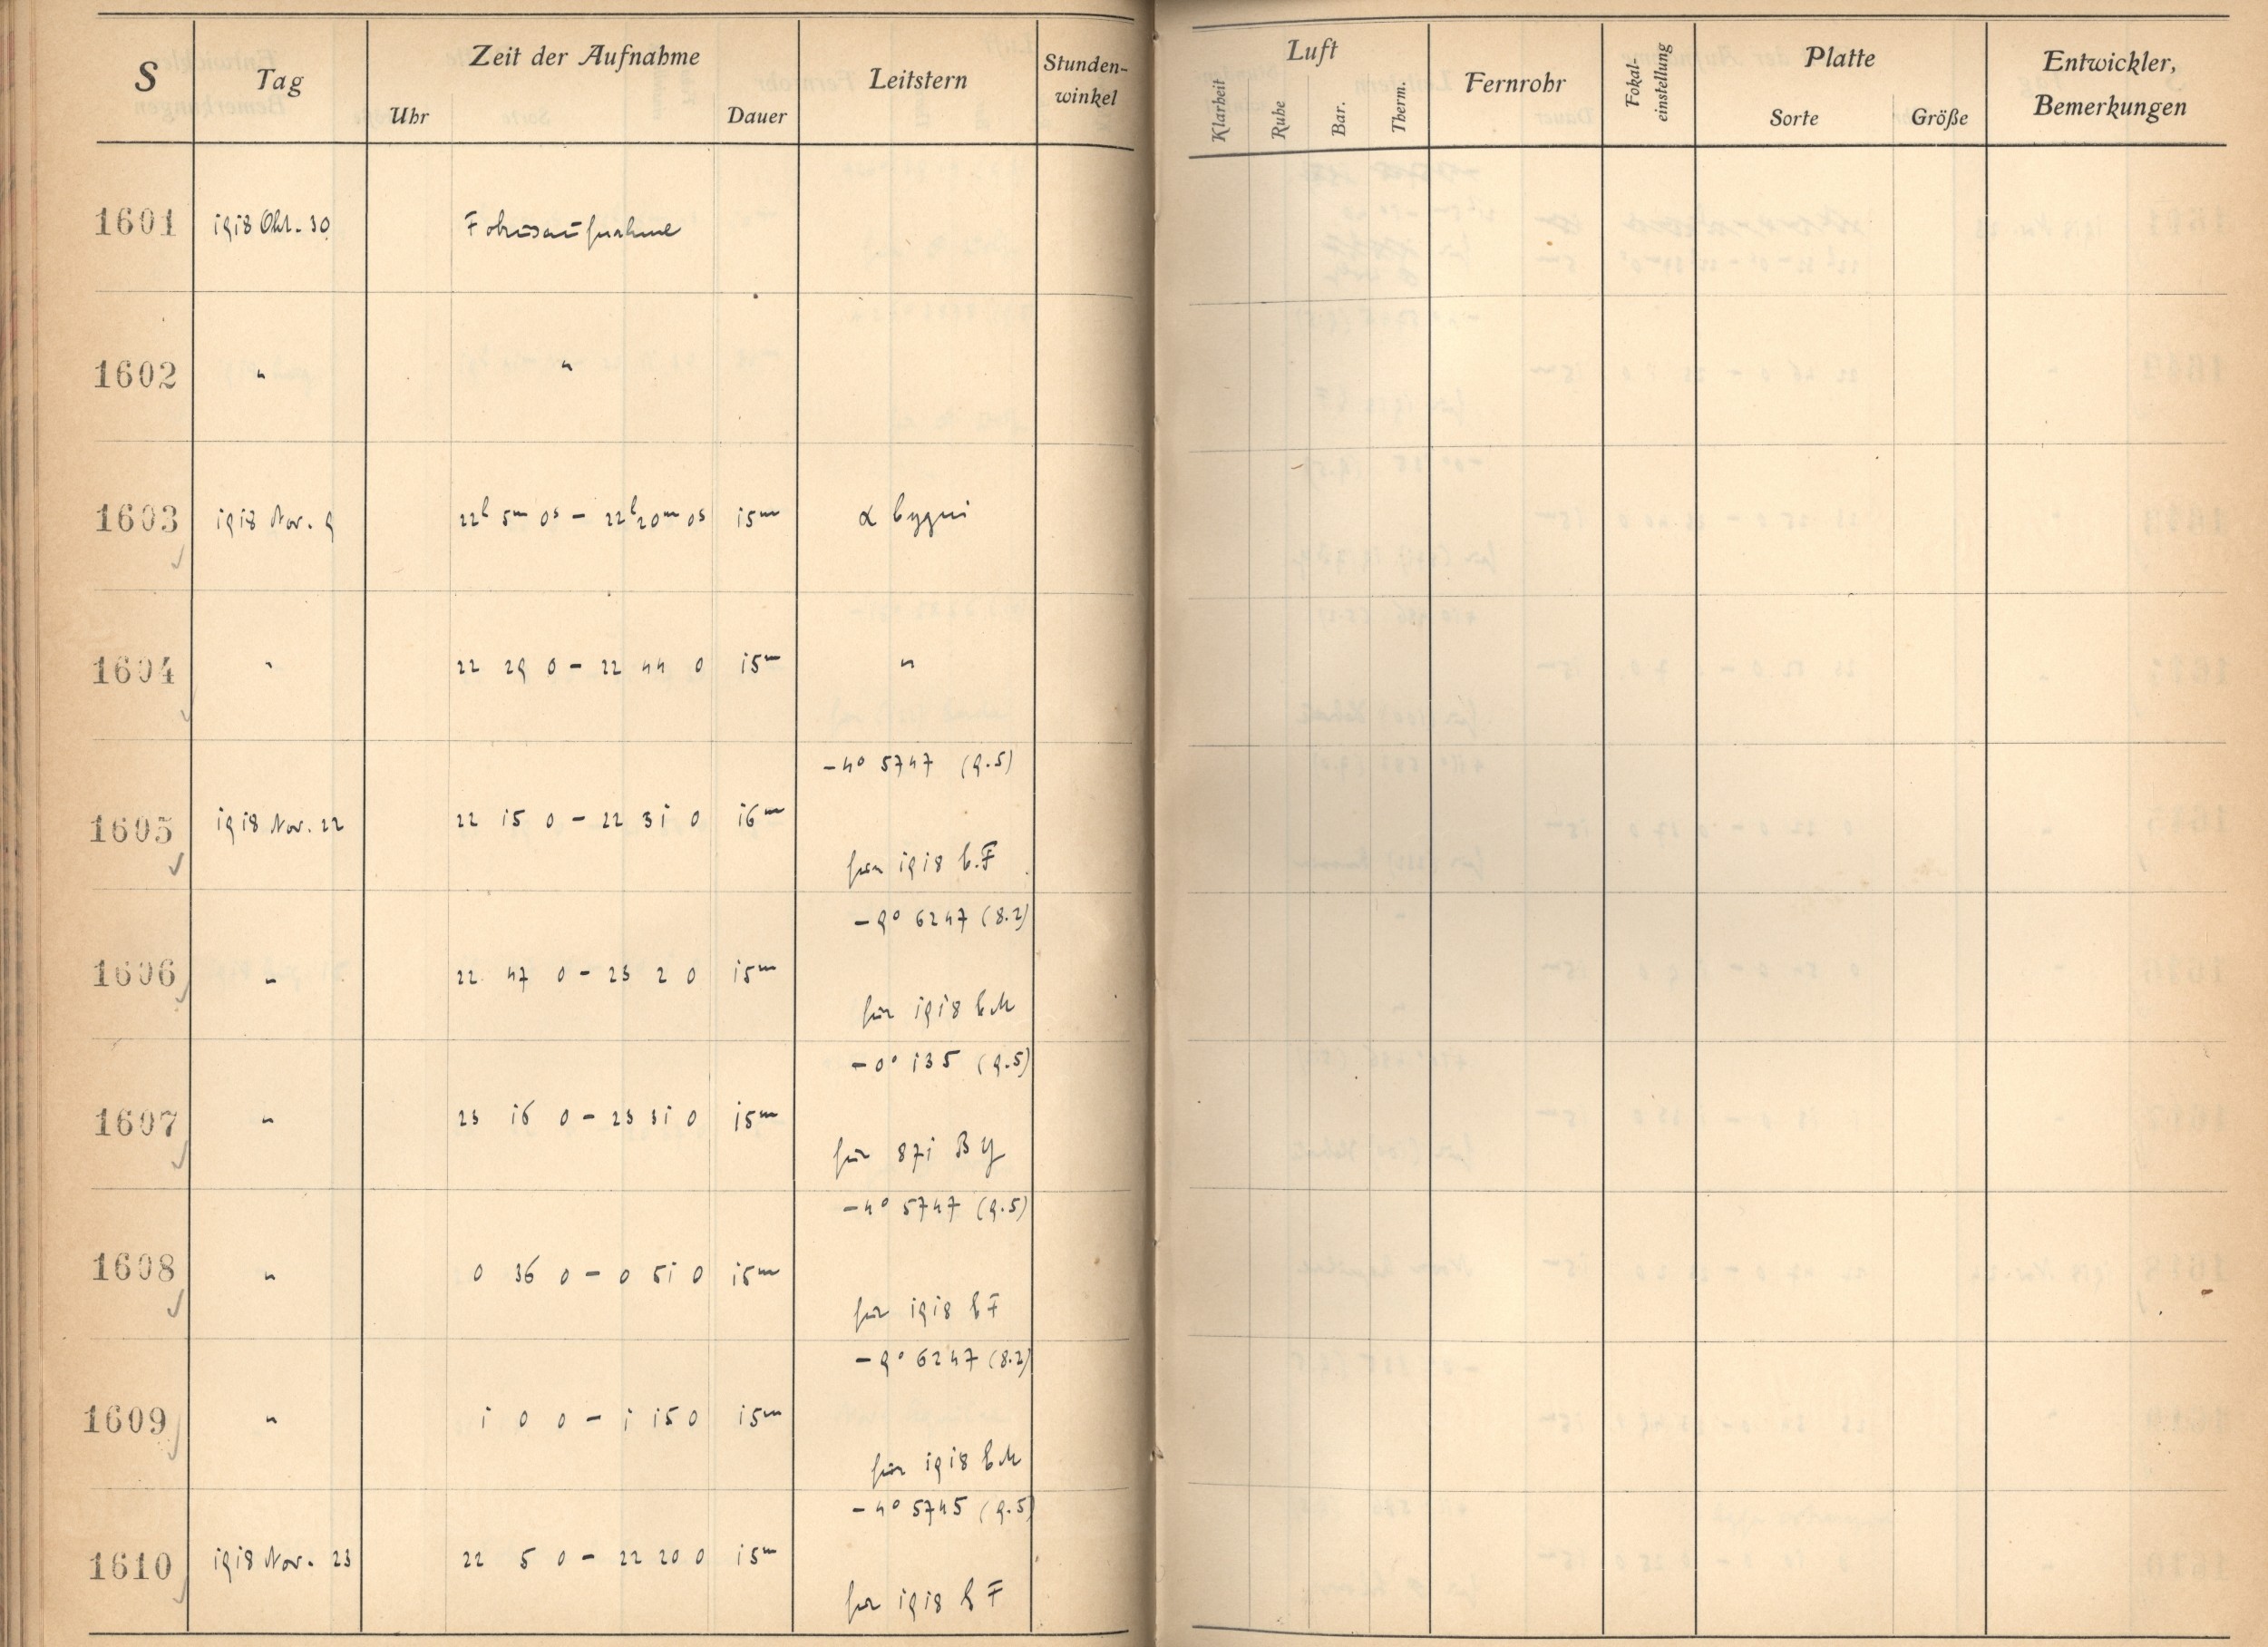 S Tag Zeit der Aufnahme Leitstern Stunden-winkel Luft Fernrohr Fokal-einstellung Platte Entwickler, Bemerkungen
Uhr Dauer Klarheit Ruhe Bar. Therm. Sorte Größe
1601 1918 Okt. 30 Fokusaufnahme
1602 " "
1603 1918 Nov. 9 22h 5m 0s – 22h 20m 0s 15m α Cygni
1604 " 22 29 0 – 22 44 0 15m "
–4° 5747 (9.5)
1605 1918 Nov. 22 22 15 0 – 22 31 0 16m
für 1918 E.F
–9° 6247 (8.2)
1606 " 22 47 0 – 23 2 0 15m
für 1918 EM
–0° 135 (9.5)
1607 " 23 16 0 – 23 31 0 15m
für 871
–4° 5747 (9.5)
1608 " 0 36 0 – 0 51 0 15m
für 1918 EF
–9° 6247 (8.2)
1609 " 1 0 0 – 1 15 0 15m
für 1918 EM
–4° 5745 (9.5)
1610 1918 Nov. 23 22 5 0 – 22 20 0 15m
für 1918 EF